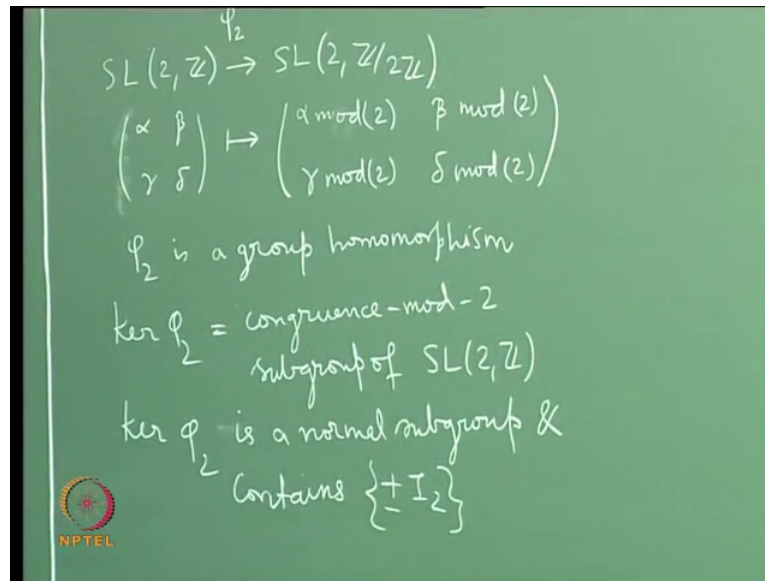 φ₂
SL(2, ℤ) → SL(2, ℤ/2ℤ)
(α β) ↦ (α mod(2) β mod(2))
(γ δ) (γ mod(2) δ mod(2))
φ₂ is a group homomorphism
ker φ₂ = congruence-mod-2
subgroup of SL(2, ℤ)
ker φ₂ is a normal subgroup &
contains {± I₂}
NPTEL